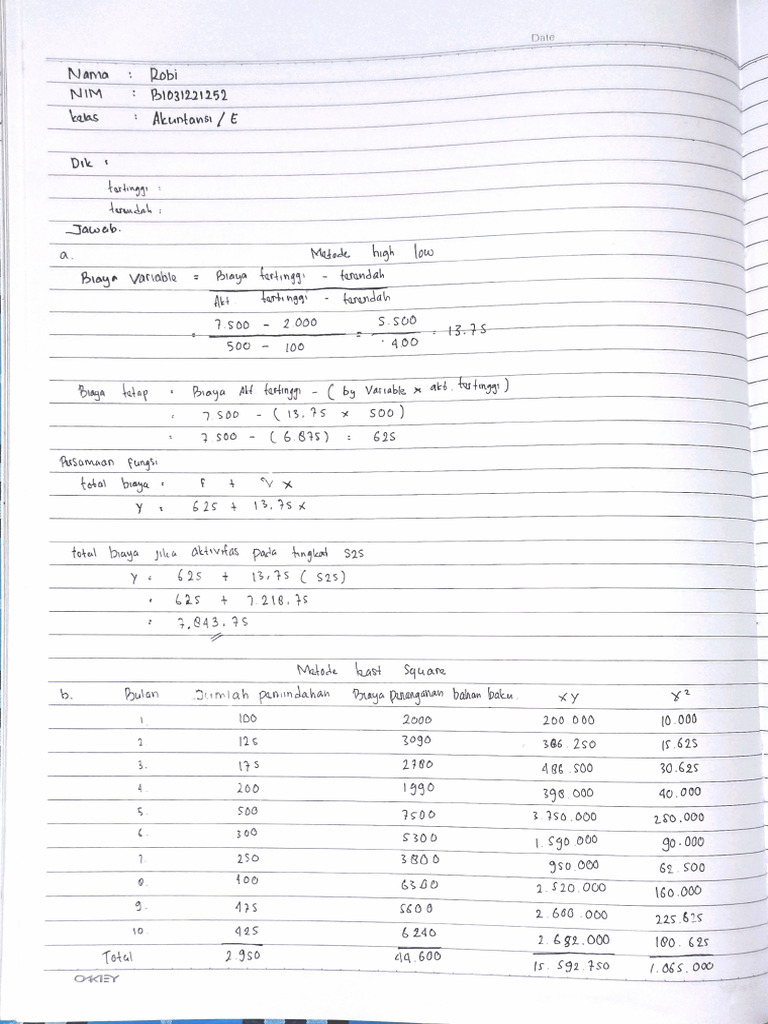 Date
Nama : Robi
NIM : B1031221252
kelas : Akuntansi / E
Dik :
tertinggi :
terendah :
Jawab.
a. Metode high low
Biaya Variable = Biaya tertinggi - terendah
Akt tertinggi - terendah
= 7.500 - 2.000 = 5.500 = 13.75
500 - 100 400
Biaya tetap = Biaya Akt tertinggi - ( by Variable x akt. tertinggi )
= 7.500 - ( 13.75 x 500 )
= 7.500 - ( 6.875 ) = 625
Persamaan fungsi
total biaya = F + V x
Y = 625 + 13.75 x
total biaya jika aktivitas pada tingkat 525
Y = 625 + 13,75 ( 525 )
= 625 + 7.218,75
= 7.843,75
Metode least square
b. Bulan Jumlah pemindahan Biaya penanganan bahan baku xy x²
1. 100 2000 200 000 10.000
2 125 3090 386.250 15.625
3. 175 2780 486.500 30.625
4. 200 1990 398.000 40.000
5. 500 7500 3.750.000 250.000
6. 300 5300 1.590.000 90.000
7. 250 3800 950.000 62.500
8. 400 6300 2.520.000 160.000
9. 475 5600 2.660.000 225.625
10. 425 6240 2.652.000 180.625
Total 2.950 44.600 15.592.750 1.065.000
OKEY